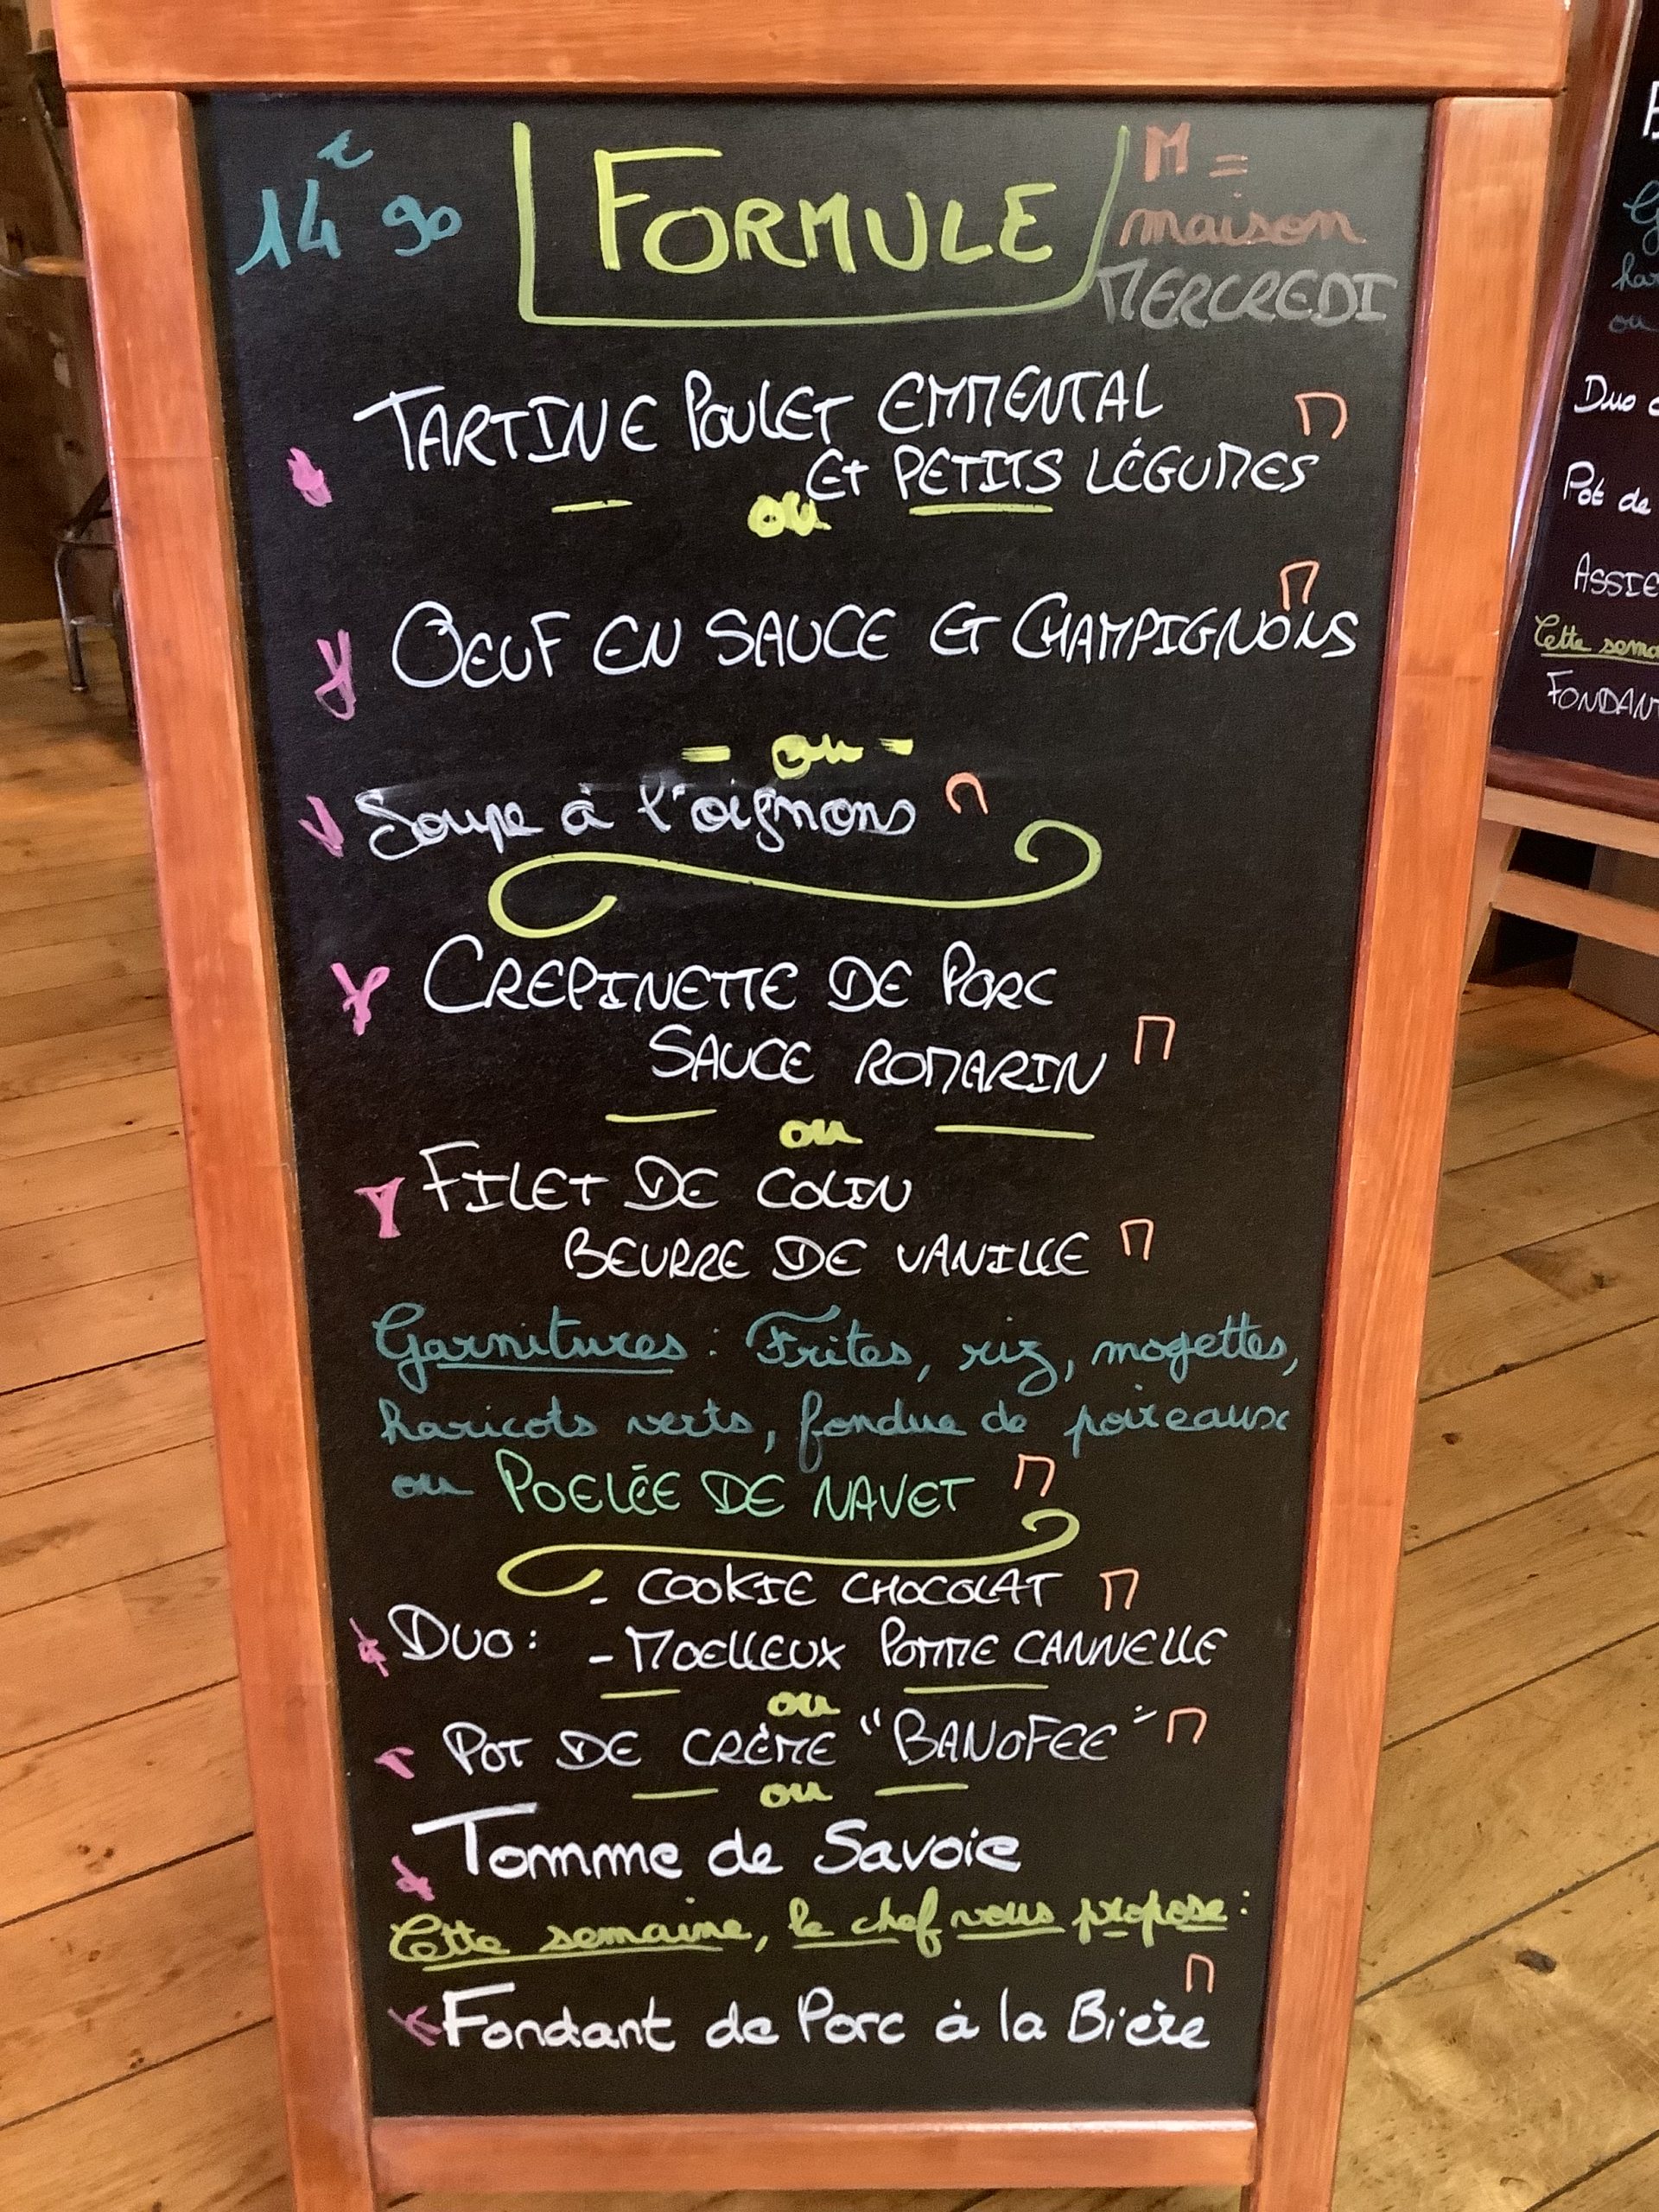 14€90
FORMULE
M =
maison
MERCREDI
TARTINE POULET EMMENTAL M
ET PETITS LÉGUMES
ou
M
OEUF EN SAUCE ET CHAMPIGNONS
- ou -
Soupe à l'oignons M
CREPINETTE DE PORC
SAUCE ROMARIN M
ou
FILET DE COLIN
BEURRE DE VANILLE M
Garnitures : Frites, riz, mogettes,
haricots verts, fondue de poireaux
ou POELÉE DE NAVET M
- COOKIE CHOCOLAT M
DUO : - MOELLEUX POMME CANNELLE
ou
POT DE CRÈME "BANOFEE" M
ou
Tomme de Savoie
Cette semaine, le chef vous propose :
M
Fondant de Porc à la Bière
ou
Duo
Pot de
ASSIE
Cette sema
FONDANT